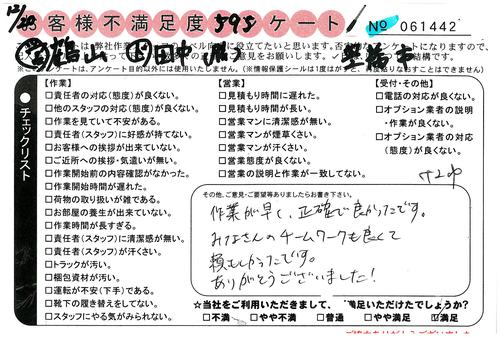 12/28 お客様不満足度 595 ケート No 061442
田中
豊橋市
チェックリスト
【作業】
□責任者の対応(態度)が良くない。
□他のスタッフの対応(態度)が良くない。
□作業を見ていて不安がある。
□責任者(スタッフ)に好感が持てない。
□お客様への挨拶が出来ていない。
□ご近所への挨拶・気遣いが無い。
□作業開始前の内容確認がなかった。
□作業開始時間が遅れた。
□荷物の取り扱いが雑である。
□お部屋の養生が出来ていない。
□作業時間が長すぎる。
□責任者(スタッフ)に清潔感が無い。
□責任者(スタッフ)が汗くさい。
□トラックが汚い。
□梱包資材が汚い。
□運転が不安(下手)である。
□靴下の履き替えをしてない。
□スタッフにやる気がみられない。
【営業】
□見積もり時間に遅れた。
□見積もり時間が長い。
□営業マンに清潔感が無い。
□営業マンが煙草くさい。
□営業マンが汗くさい。
□営業態度が良くない。
□営業の説明と作業が一致してない。
【受付・その他】
□電話の対応が良くない。
□オプション業者の説明
・作業が良くない。
□オプション業者の対応
(態度)が良くない。
その他、ご意見・ご要望等ありましたらお書き下さい。
作業が早く、正確で良かったです。
みなさんのチームワークも良くて
頼もしかったです。
ありがとうございました!
☆当社をご利用いただきまして、満足いただけたでしょうか?
□不満 □やや不満 □普通 □やや満足 □満足